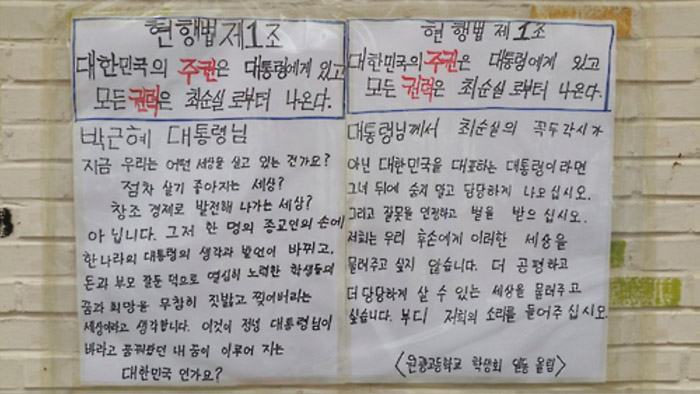 현행법 제1조
대한민국의 주권은 대통령에게 있고
모든 권력은 최순실 로부터 나온다.
박근혜 대통령님
지금 우리는 어떤 세상을 살고 있는 건가요?
점차 살기 좋아지는 세상?
창조 경제로 발전해 나가는 세상?
아닙니다. 그저 한 명의 종교인의 손에
한 나라의 대통령의 생각과 발언이 바뀌고,
돈과 부모 잘둔 덕으로 열심히 노력한 학생들의
꿈과 희망을 무참히 짓밟고 찢어버리는
세상이라고 생각합니다. 이것이 정녕 대통령님이
바라고 꿈꿔왔던 내 꿈이 이루어 지는
대한민국 인가요?
현행법 제1조
대한민국의 주권은 대통령에게 있고
모든 권력은 최순실 로부터 나온다.
대통령님께서 최순실의 꼭두각시가
아닌 대한민국을 대표하는 대통령이라면
그녀 뒤에 숨지 말고 당당하게 나오십시오.
그리고 잘못을 인정하고 벌을 받으십시오.
저희는 우리 후손에게 이러한 세상을
물려주고 싶지 않습니다. 더 공평하고
더 당당하게 살 수 있는 세상을 물려주고
싶습니다. 부디 저희의 소리를 들어주십시오.
고등학교 학생회 일동 올림>